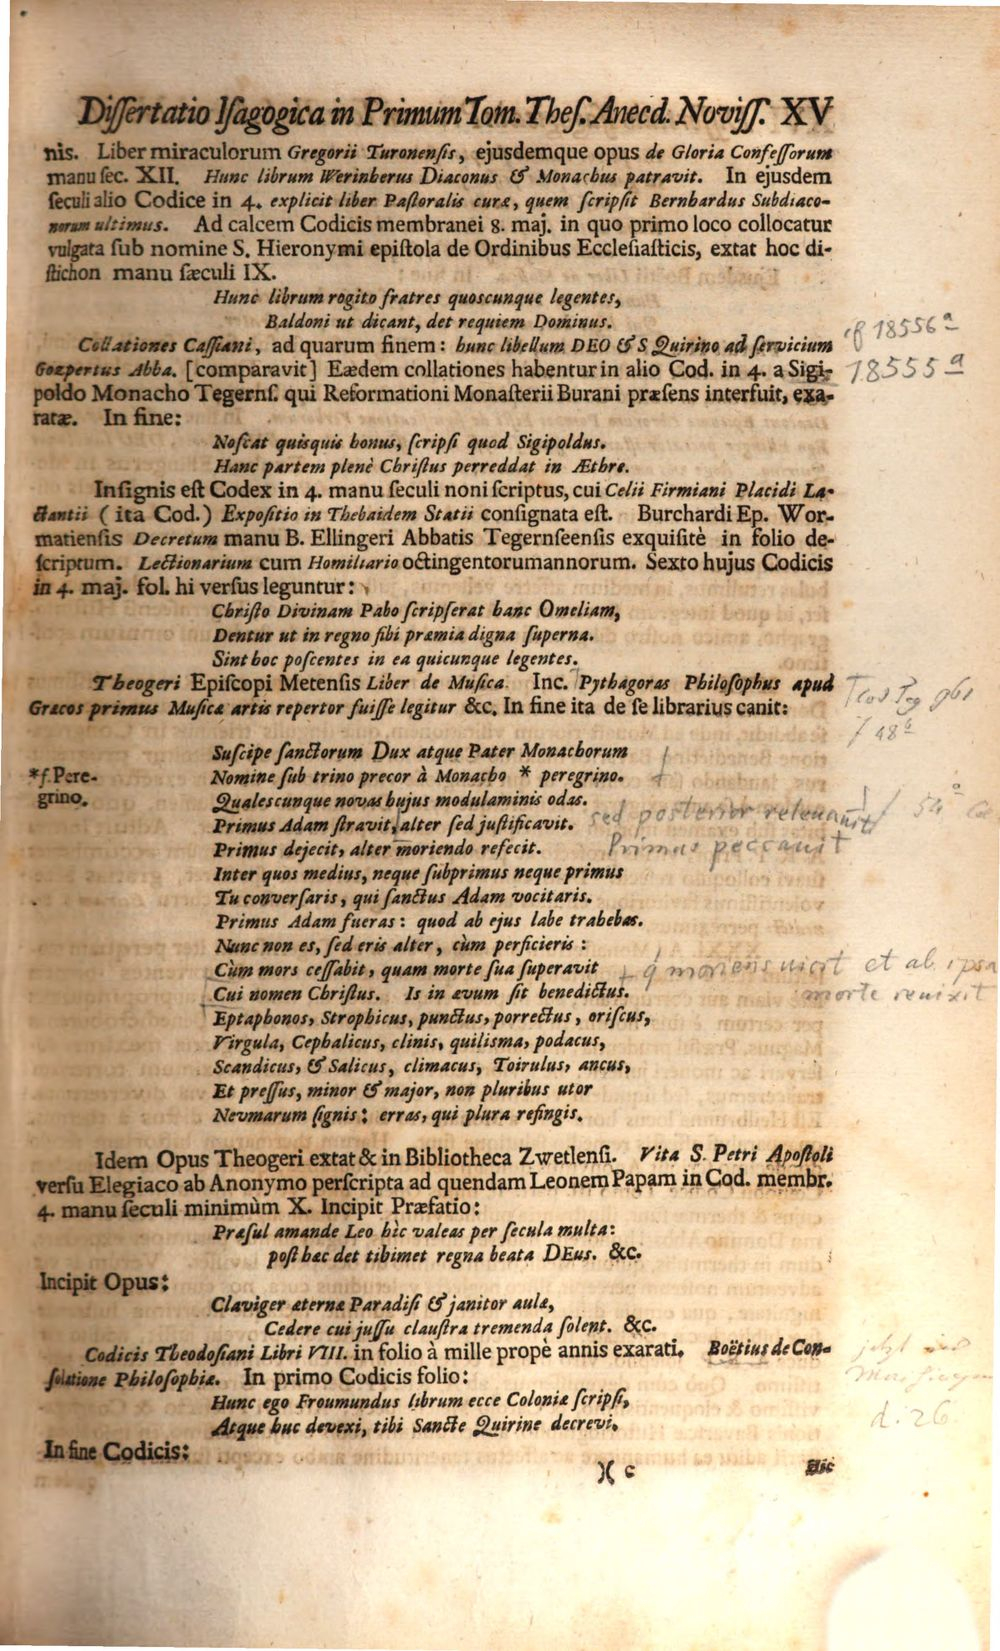 Dissertatio Isagogica in Primum Tom. Thes. Anecd. Noviss. XV
nis. Liber miraculorum Gregorii Turonensis, ejusdemque opus de Gloria Confessorum
manu sec. XII. Hunc librum Werinherus Diaconus & Monachus patravit. In ejusdem
seculi alio Codice in 4. explicit liber Pastoralis curæ, quem scripsit Bernhardus Subdiaco-
norum ultimus. Ad calcem Codicis membranei 8. maj. in quo primo loco collocatur
vulgata sub nomine S. Hieronymi epistola de Ordinibus Ecclesiasticis, extat hoc di-
stichon manu sæculi IX.
Hunc librum rogito fratres quoscunque legentes,
Baldoni ut dicant, det requiem Dominus.
Collationes Cassiani, ad quarum finem: hunc libellum DEO & S Quirino ad servicium
Gozpertus Abba. [comparavit] Eædem collationes habentur in alio Cod. in 4. a Sigi-
poldo Monacho Tegerns. qui Reformationi Monasterii Burani præsens interfuit, exa-
ratæ. In fine:
18556a
18555a
Noscat quisquis bonus, scripsi quod Sigipoldus.
Hanc partem plenè Christus perreddat in Æthre.
Insignis est Codex in 4. manu seculi noni scriptus, cui Celii Firmiani Placidi La-
ctantii (ita Cod.) Expositio in Thebaidem Statii consignata est. Burchardi Ep. Wor-
matiensis Decretum manu B. Ellingeri Abbatis Tegernseensis exquisitè in folio de-
scriptum. Lectionarium cum Homiliario octingentorum annorum. Sexto hujus Codicis
in 4. maj. fol. hi versus leguntur:
Christo Divinam Pabo scripserat hanc Omeliam,
Dentur ut in regno sibi præmia digna superna.
Sint hoc poscentes in ea quicunque legentes.
Theogeri Episcopi Metensis Liber de Musica. Inc. Pythagoras Philosophus apud
Græcos primus Musicæ artis repertor fuisse legitur &c. In fine ita de se librarius canit:
Suscipe sanctorum Dux atque Pater Monachorum
Nomine sub trino precor à Monacho * peregrino.
*f. Pere-
grino.
Qualescunque novas hujus modulaminis odas.
Primus Adam stravit, alter sed justificavit.
sed posterior releuauit
Primus dejecit, alter moriendo refecit.
Primus peccauit
Inter quos medius, neque subprimus neque primus
Tu conversaris, qui sanctus Adam vocitaris.
Primus Adam fueras: quod ab ejus labe trahebas.
Nunc non es, sed eris alter, cùm perficieris:
Cùm mors cessabit, quam morte sua superavit
q moriens uicit et ab ipsa
morte reuixit
Cui nomen Christus. Is in ævum sit benedictus.
Eptaphonos, Strophicus, punctus, porrectus, oriscus,
Virgula, Cephalicus, clinis, quilisma, podacus,
Scandicus, & Salicus, climacus, Toirulus, ancus,
Et pressus, minor & major, non pluribus utor
Nevmarum signis: erras, qui plura refingis.
Idem Opus Theogeri extat & in Bibliotheca Zwetlensi. Vita S. Petri Apostoli
versu Elegiaco ab Anonymo perscripta ad quendam Leonem Papam in Cod. membr.
4. manu seculi minimùm X. Incipit Præfatio:
Præsul amande Leo hîc valeas per secula multa:
post hæc det tibimet regna beata DEus. &c.
Incipit Opus:
Claviger æternæ Paradisi & janitor aulæ,
Cedere cui jussu claustra tremenda solent. &c.
Codicis Theodosiani Libri VIII. in folio à mille propè annis exarati. Boëtius de Con-
solatione Philosophiæ. In primo Codicis folio:
Hunc ego Froumundus librum ecce Coloniæ scripsi,
Atque huc devexi, tibi Sancte Quirine decrevi.
d. 26
In fine Codicis:
)( c
Hic